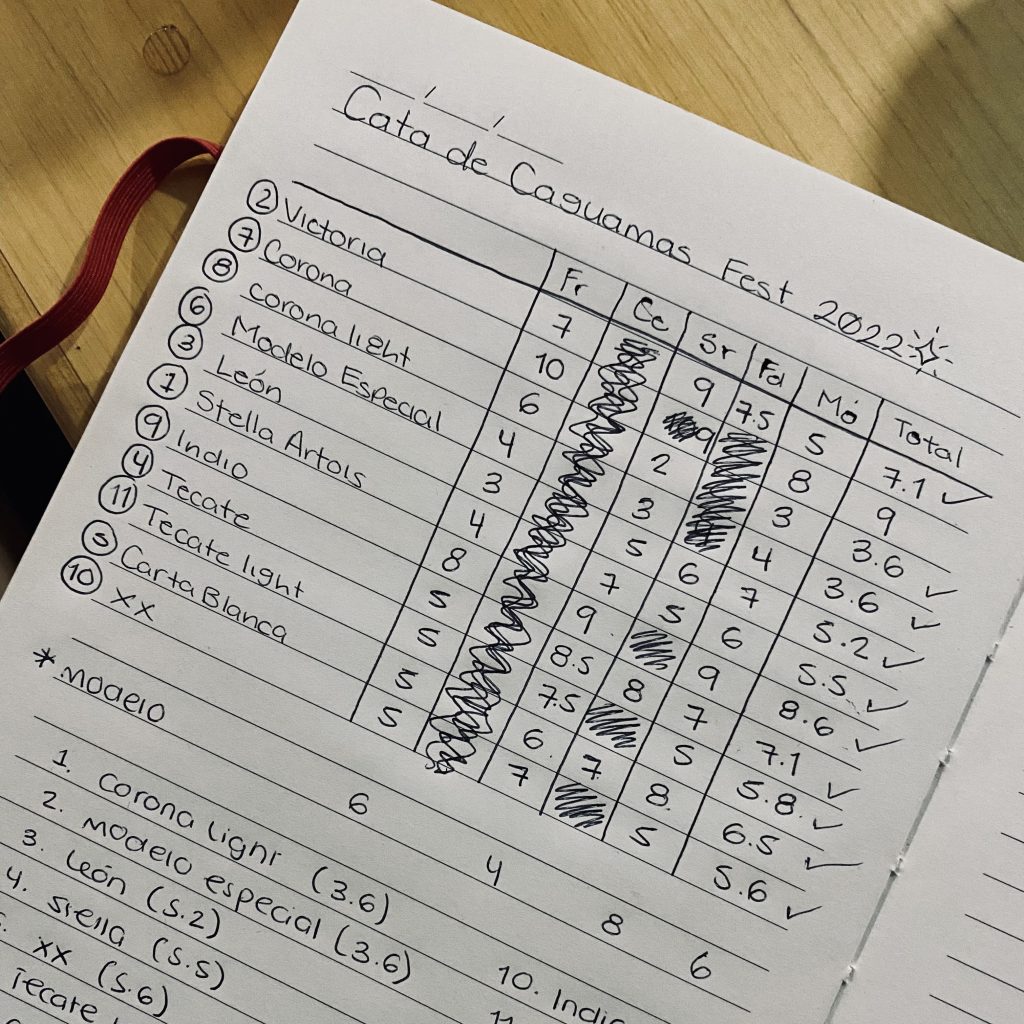 Cata de Caguamas Fest 2022
Fr Cc Sr Fa Mó Total
2 Victoria 7 9 7.5 5 7.1 ✓
7 Corona 10 9 8 9
8 corona light 6 2 3 3.6 ✓
6 Modelo Especial 4 3 4 3.6 ✓
3 León 3 5 6 7 5.2 ✓
1 Stella Artois 4 7 5 6 5.5 ✓
9 Indio 8 9 9 8.6 ✓
4 Tecate 5 8.5 8 7 7.1 ✓
11 Tecate light 5 7.5 5 5.8 ✓
5 Carta Blanca 5 6 7 8 6.5 ✓
10 XX 5 7 5 5.6 ✓
* Modelo 6 4 8 6
1. Corona light (3.6)
2. Modelo especial (3.6)
3. León (5.2)
4. Stella (5.5)
5. XX (5.6)
Tecate
10. Indio
11.